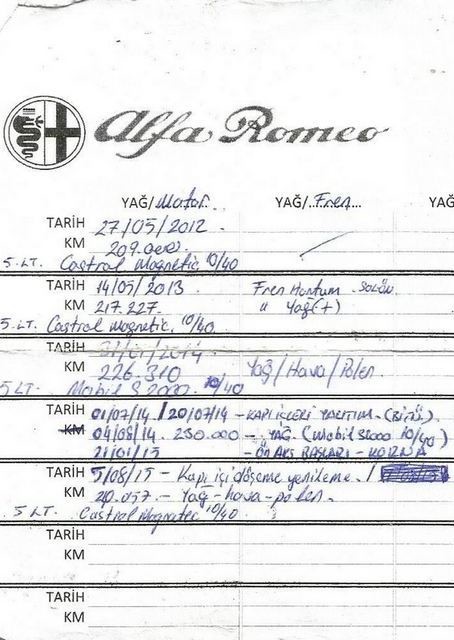 Alfa Romeo
YAĞ/Motor YAĞ/..Fren... YAĞ
TARİH 27/05/2012
KM 209.000.
5.LT. Castrol Magnetic 10/40
TARİH 14/05/2013 Fren Hortum
KM 217.227. " Yağ(+)
5.LT. Castrol Magnetic. 10/40
TARİH
KM 226.310 Yağ/Hava/Polen
5 LT. Mobil S 2000 10/40
TARİH 01/07/14 / 20/07/14 - KAPI İÇLERİ YALITIM (BİTÜ).
KM 04/08/14. 230.000 - YAĞ. (Mobil S2000 10/40)
21/01/15 - ÖN AKS BAŞLARI - KORNA
TARİH 5/08/15 - Kapı içi döşeme yenileme. /
KM - Yağ-hava-polen.
5 LT. Castrol Magnatec 10/40.
TARİH
KM
TARİH
KM